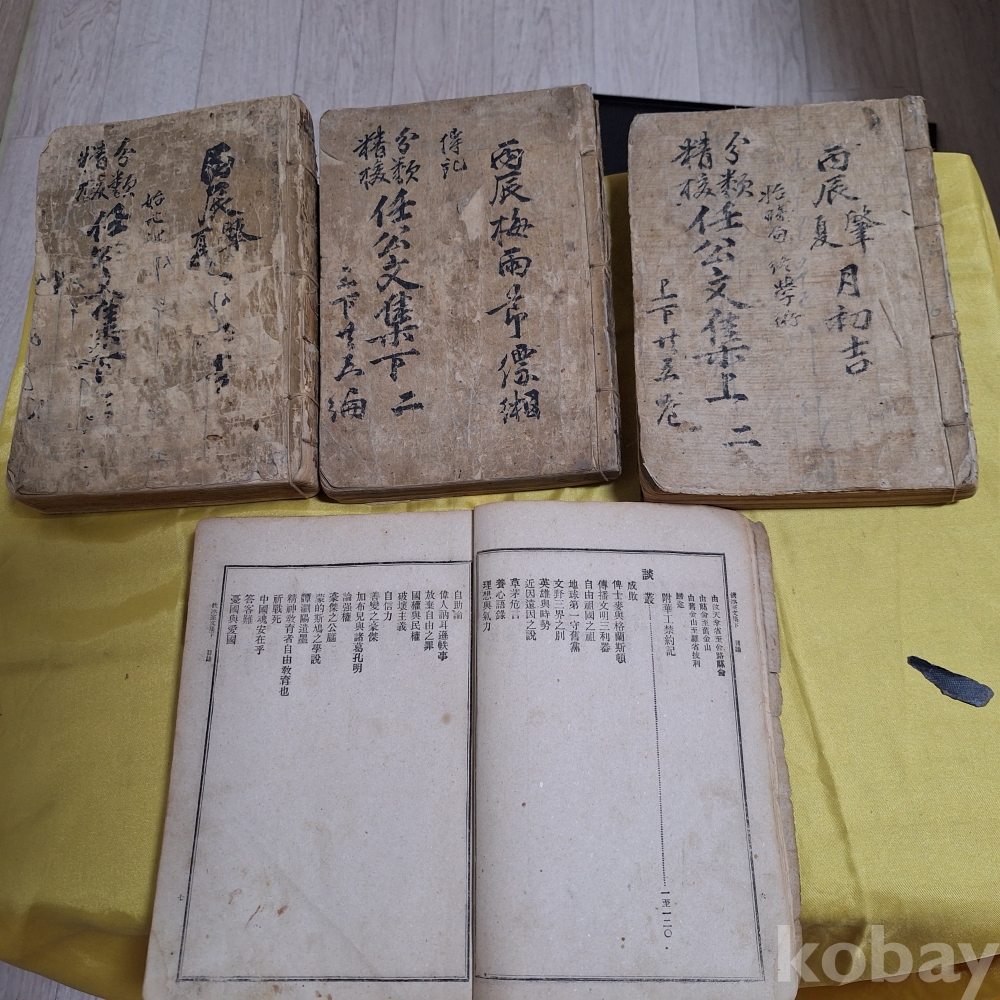 丙辰肇
夏
月初吉
分類
精校
任公文集上
二
丙辰梅雨節縹緗
傳記
分類
精校
任公文集下
二
丙辰肇
分類
任公文集下
由舊金山至羅省技利
歸途
附華工禁約記
談叢
一至一二〇
成敗
俾士麥與格蘭斯頓
傳播文明三利器
自由祖國之祖
地球第一守舊黨
文野三界之別
英雄與時勢
近因遠因之說
草茅危言
養心語錄
理想與氣力
自助論
偉人訥耳遜軼事
放棄自由之罪
國權與民權
破壞主義
自信力
善變之豪傑
加布兒與諸葛孔明
論强權
豪傑之公腦
蒙的斯鳩之學說
譚瀏陽遺墨
精神教育者自由教育也
祈戰死
中國魂安在乎
答客難
憂國與愛國
七
kobay